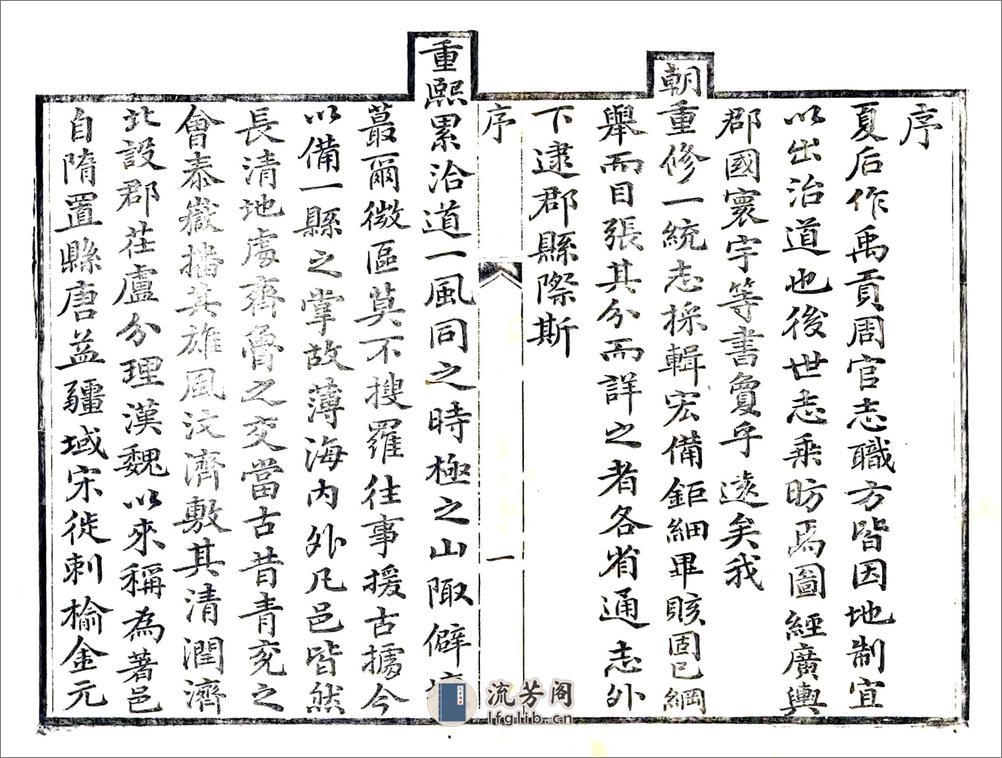 序
夏后作禹貢周官志職方皆因地制宜
以出治道也後世志乘昉焉圖經廣輿
郡國寰宇等書敻乎遠矣我
朝重修一統志採輯宏備鉅細畢賅固已綱
舉而目張其分而詳之者各省通志外
下逮郡縣際斯
序
一
重熙累洽道一風同之時極之山陬僻
蕞爾微區莫不搜羅往事援古據今
以備一縣之掌故薄海內外凡邑皆然
長清地處齊魯之交當古昔青兗之
會泰嶽播其雄風汶濟敷其清潤濟
北設郡茌盧分理漢魏以來稱為著邑
自隋置縣唐益疆域宋徙刺榆金元
流芳阁
lfglib.cn